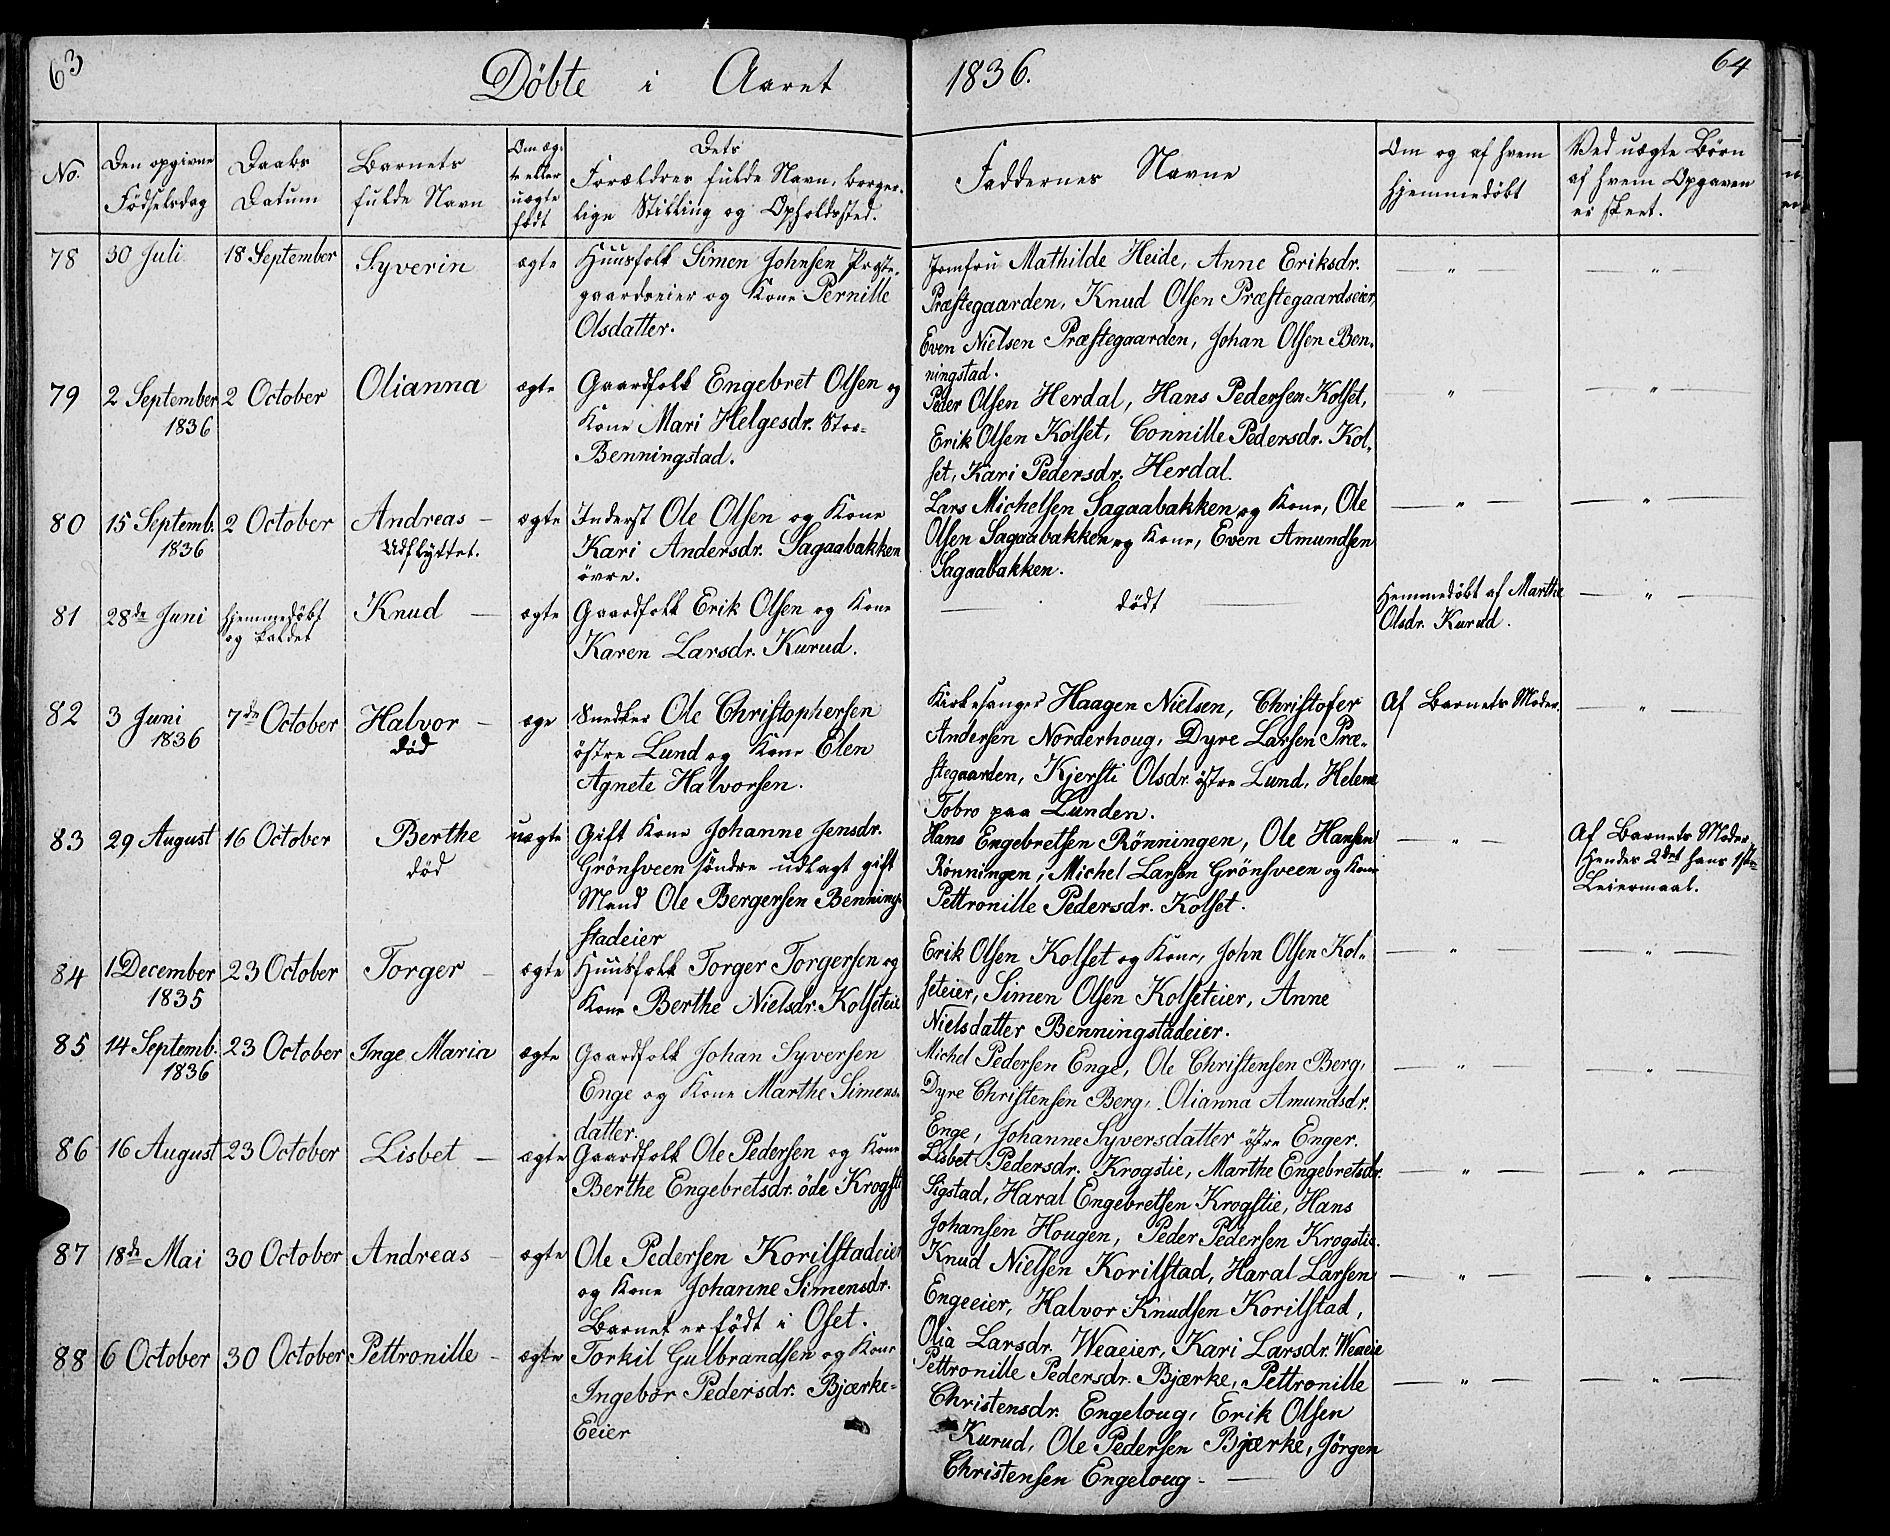 63
Döbte i Aaret 1836.
64
No.
Den opgivne Födselsdag
Daabs Datum
Barnets fulde Navn
Om æg- te eller uægte födt
Dets Forældres fulde Navn, borger- lige Stilling og Opholdssted.
Faddernes Navne
Om og af hvem hjemmedöbt
Ved uægte Börn af hvem Opgaven er skeet.
78 30 Juli 18 September Syverin ægte Huusfolk Simen Johnsen Præste-
gaardseier og Kone Pernille
Olsdatter.
Jomfru Mathilde Heide, Anne Eriksdr.
Præstegaarden, Knud Olsen Præstegaardseier,
Even Nielsen Præstegaarden, Johan Olsen Ben-
ningstad.
— " —
— " —
79 2 September 2 October Olianna ægte Gaardfolk Engebret Olsen og
1836
Kone Mari Helgesdr. Stor-
Benningstad.
Peder Olsen Herdal, Hans Pedersen Kolset,
Erik Olsen Kolset, Connille Pedersdr. Kol-
set, Kari Pedersdr. Herdal.
— " —
— " —
80 15 Septemb. 2 October Andreas — ægte Inderst Ole Olsen og Kone
1836
Udflyttet.
Kari Andersdr. Sagaabakken
övre.
Lars Michelsen Sagaabakken og Kone, Ole
Olsen Sagaabakken og Kone, Even Amundsen
Sagaabakken.
— " —
— " —
81 28de Juni hjemmedöbt Knud — ægte Gaardfolk Erik Olsen og Kone
og kaldet
Karen Larsdr. Kurud.
— dödt —
Hemmedöbt af Marthe
Olsdr. Kurud.
— " —
82 3 Juni 7de October Halvor — æge Snedker Ole Christophersen
1836
död
östre Lund og Kone Elen
Agnete Halvorsen.
Kirkesanger Haagen Nielsen, Christofer
Andersen Norderhoug, Dyre Larsen Præ-
stegaarden, Kjersti Olsdr. östre Lund, Helene
Tobro paa Lunden.
Af Barnets Moder.
— " —
83 29 August 16 October Berthe uægte Gift Kone Johanne Jensdr.
död
Grönsveen söndre udlagt gift
Mand Ole Bergersen Bennings-
stadeier
Hans Engebretsen Rönningen, Ole Hansen
Rönningen, Michel Larsen Grönsveen og Kone
Pettronille Pedersdr. Kolset.
— " —
Af Barnets Moder
hendes 2det hans 1ste
Leiermaal.
84 1 December 23 October Torger — ægte Huusfolk Torger Torgersen og
1835
Kone Berthe Nielsdr. Kolseteie
Erik Olsen Kolset og Kone, John Olsen Kol-
seteier, Simen Olsen Kolseteier, Anne
Nielsdatter Benningstadeier.
— " —
— " —
85 14 Septemb. 23 October Inge Maria ægte Gaardfolk Johan Syversen
1836
Enge og Kone Marthe Simens-
datter.
Michel Pedersen Enge, Ole Christensen Berg,
Dyre Christensen Berg, Olianna Amundsdr.
Enge, Johanne Syversdatter östre Enger.
— " —
— " —
86 16 August 23 October Lisbet — ægte Gaardfolk Ole Pedersen og Kone
Berthe Engebretsdr. öde Krogsti
Lisbet Pedersdr. Krogstie, Marthe Engebretsdr.
Sigstad, Haral Engebretsen Krogstie, Hans
Johansen Hougen, Peder Pedersen Krogstie.
— " —
— " —
87 18de Mai 30 October Andreas — ægte Ole Pedersen Korilstadeier
og Kone Johanne Simensdr.
Barnet er födt i Oset.
Knud Nielsen Korilstad, Haral Larsen
Engeeier, Halvor Knudsen Korilstad,
Olia Larsdr. Weaeier, Kari Larsdr. Weaeie
— " —
— " —
88 6 October 30 October Pettronille — ægte Torkil Gulbrandsen og Kone
Ingebor Pedersdr. Bjærke-
Eeier
Pettronille Pedersdr. Bjærke, Pettronille
Christensdr. Engeloug, Erik Olsen
Kurud, Ole Pedersen Bjærke, Jörgen
Christensen Engeloug —
— " —
— " —